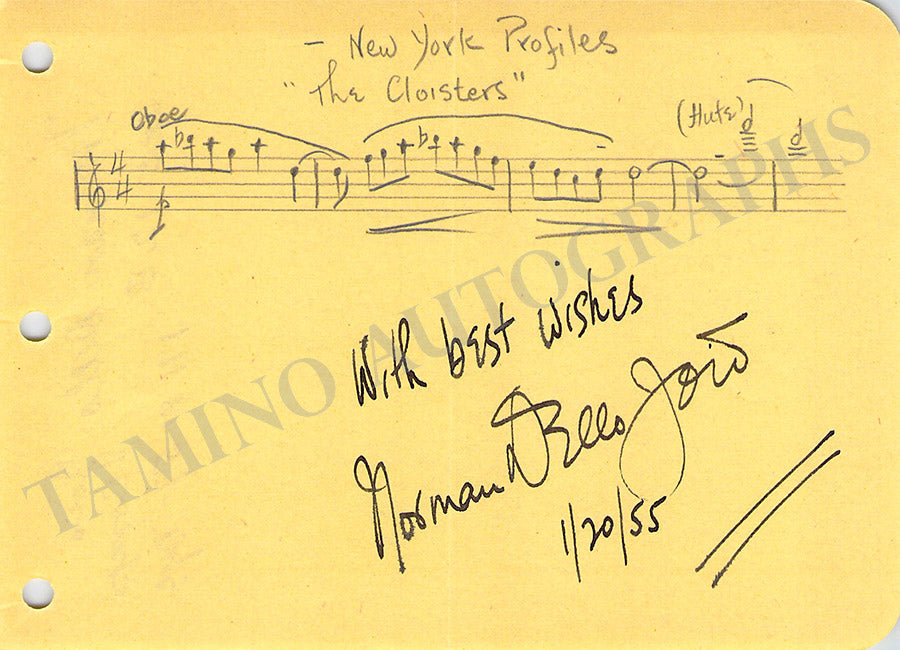 - New York Profiles
"The Cloisters"
Oboe
(flute)
4
4
p
With best wishes
Norman Dello Joio
1/20/55
TAMINO AUTOGRAPHS